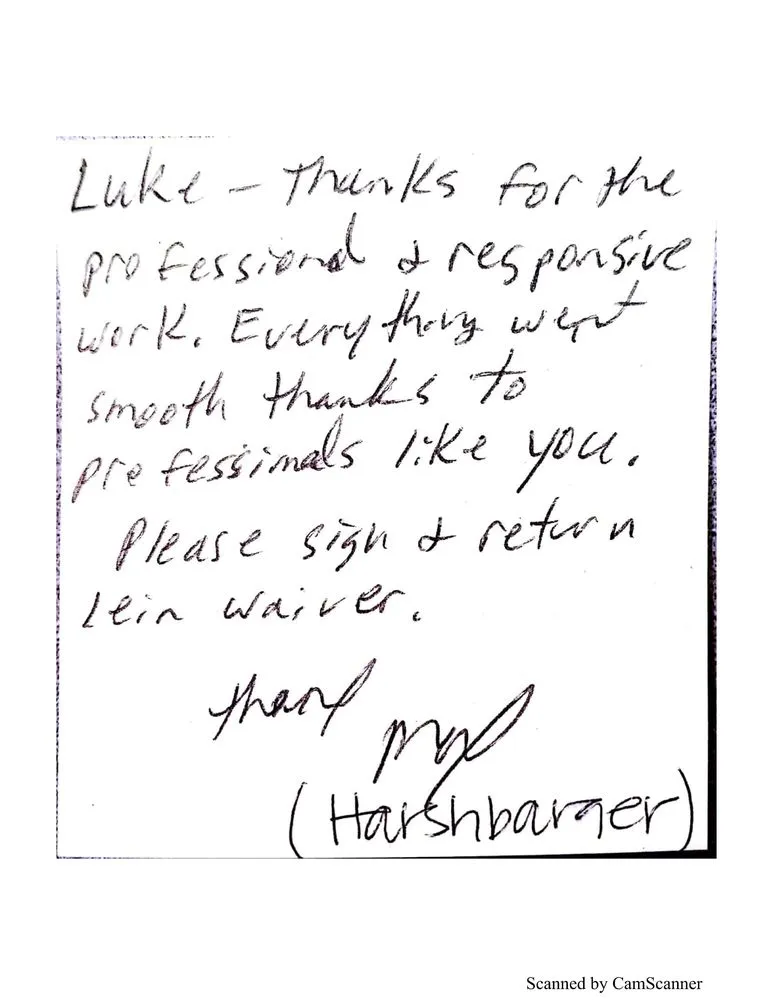 Luke – Thanks for the
professional & responsive
work. Everything went
smooth thanks to
professionals like you.
Please sign & return
lein waiver.
(Harshbarger)
Scanned by CamScanner